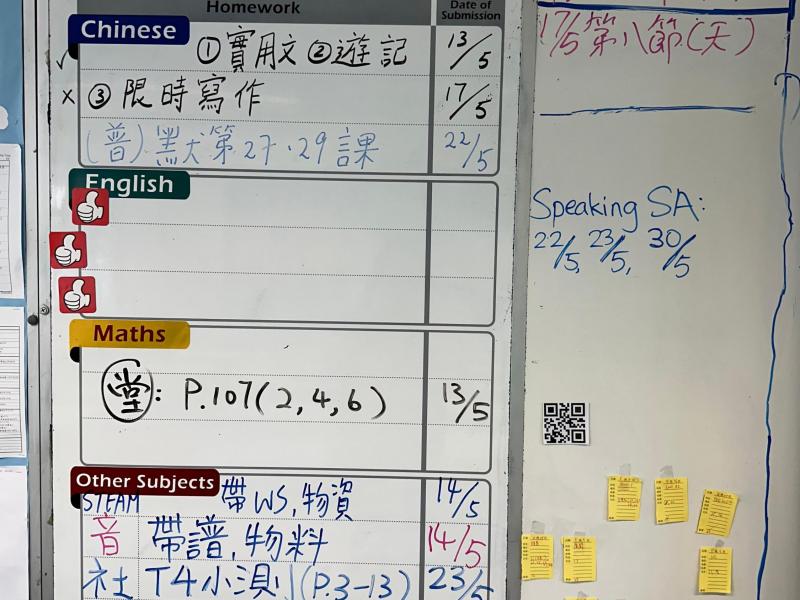 Homework
Date of Submission
Chinese
✓ ①實用文 ②遊記 13/5
x ③限時寫作 17/5
(普)默第27、29課 22/5
English
Maths
堂: P.107(2,4,6) 13/5
Other Subjects
STEAM 帶WS,物資 14/5
音 帶譜,物料 14/5
社 T4小測(P.3-13) 23/5
17/5 第八節(天)
Speaking SA:
22/5, 23/5, 30/5